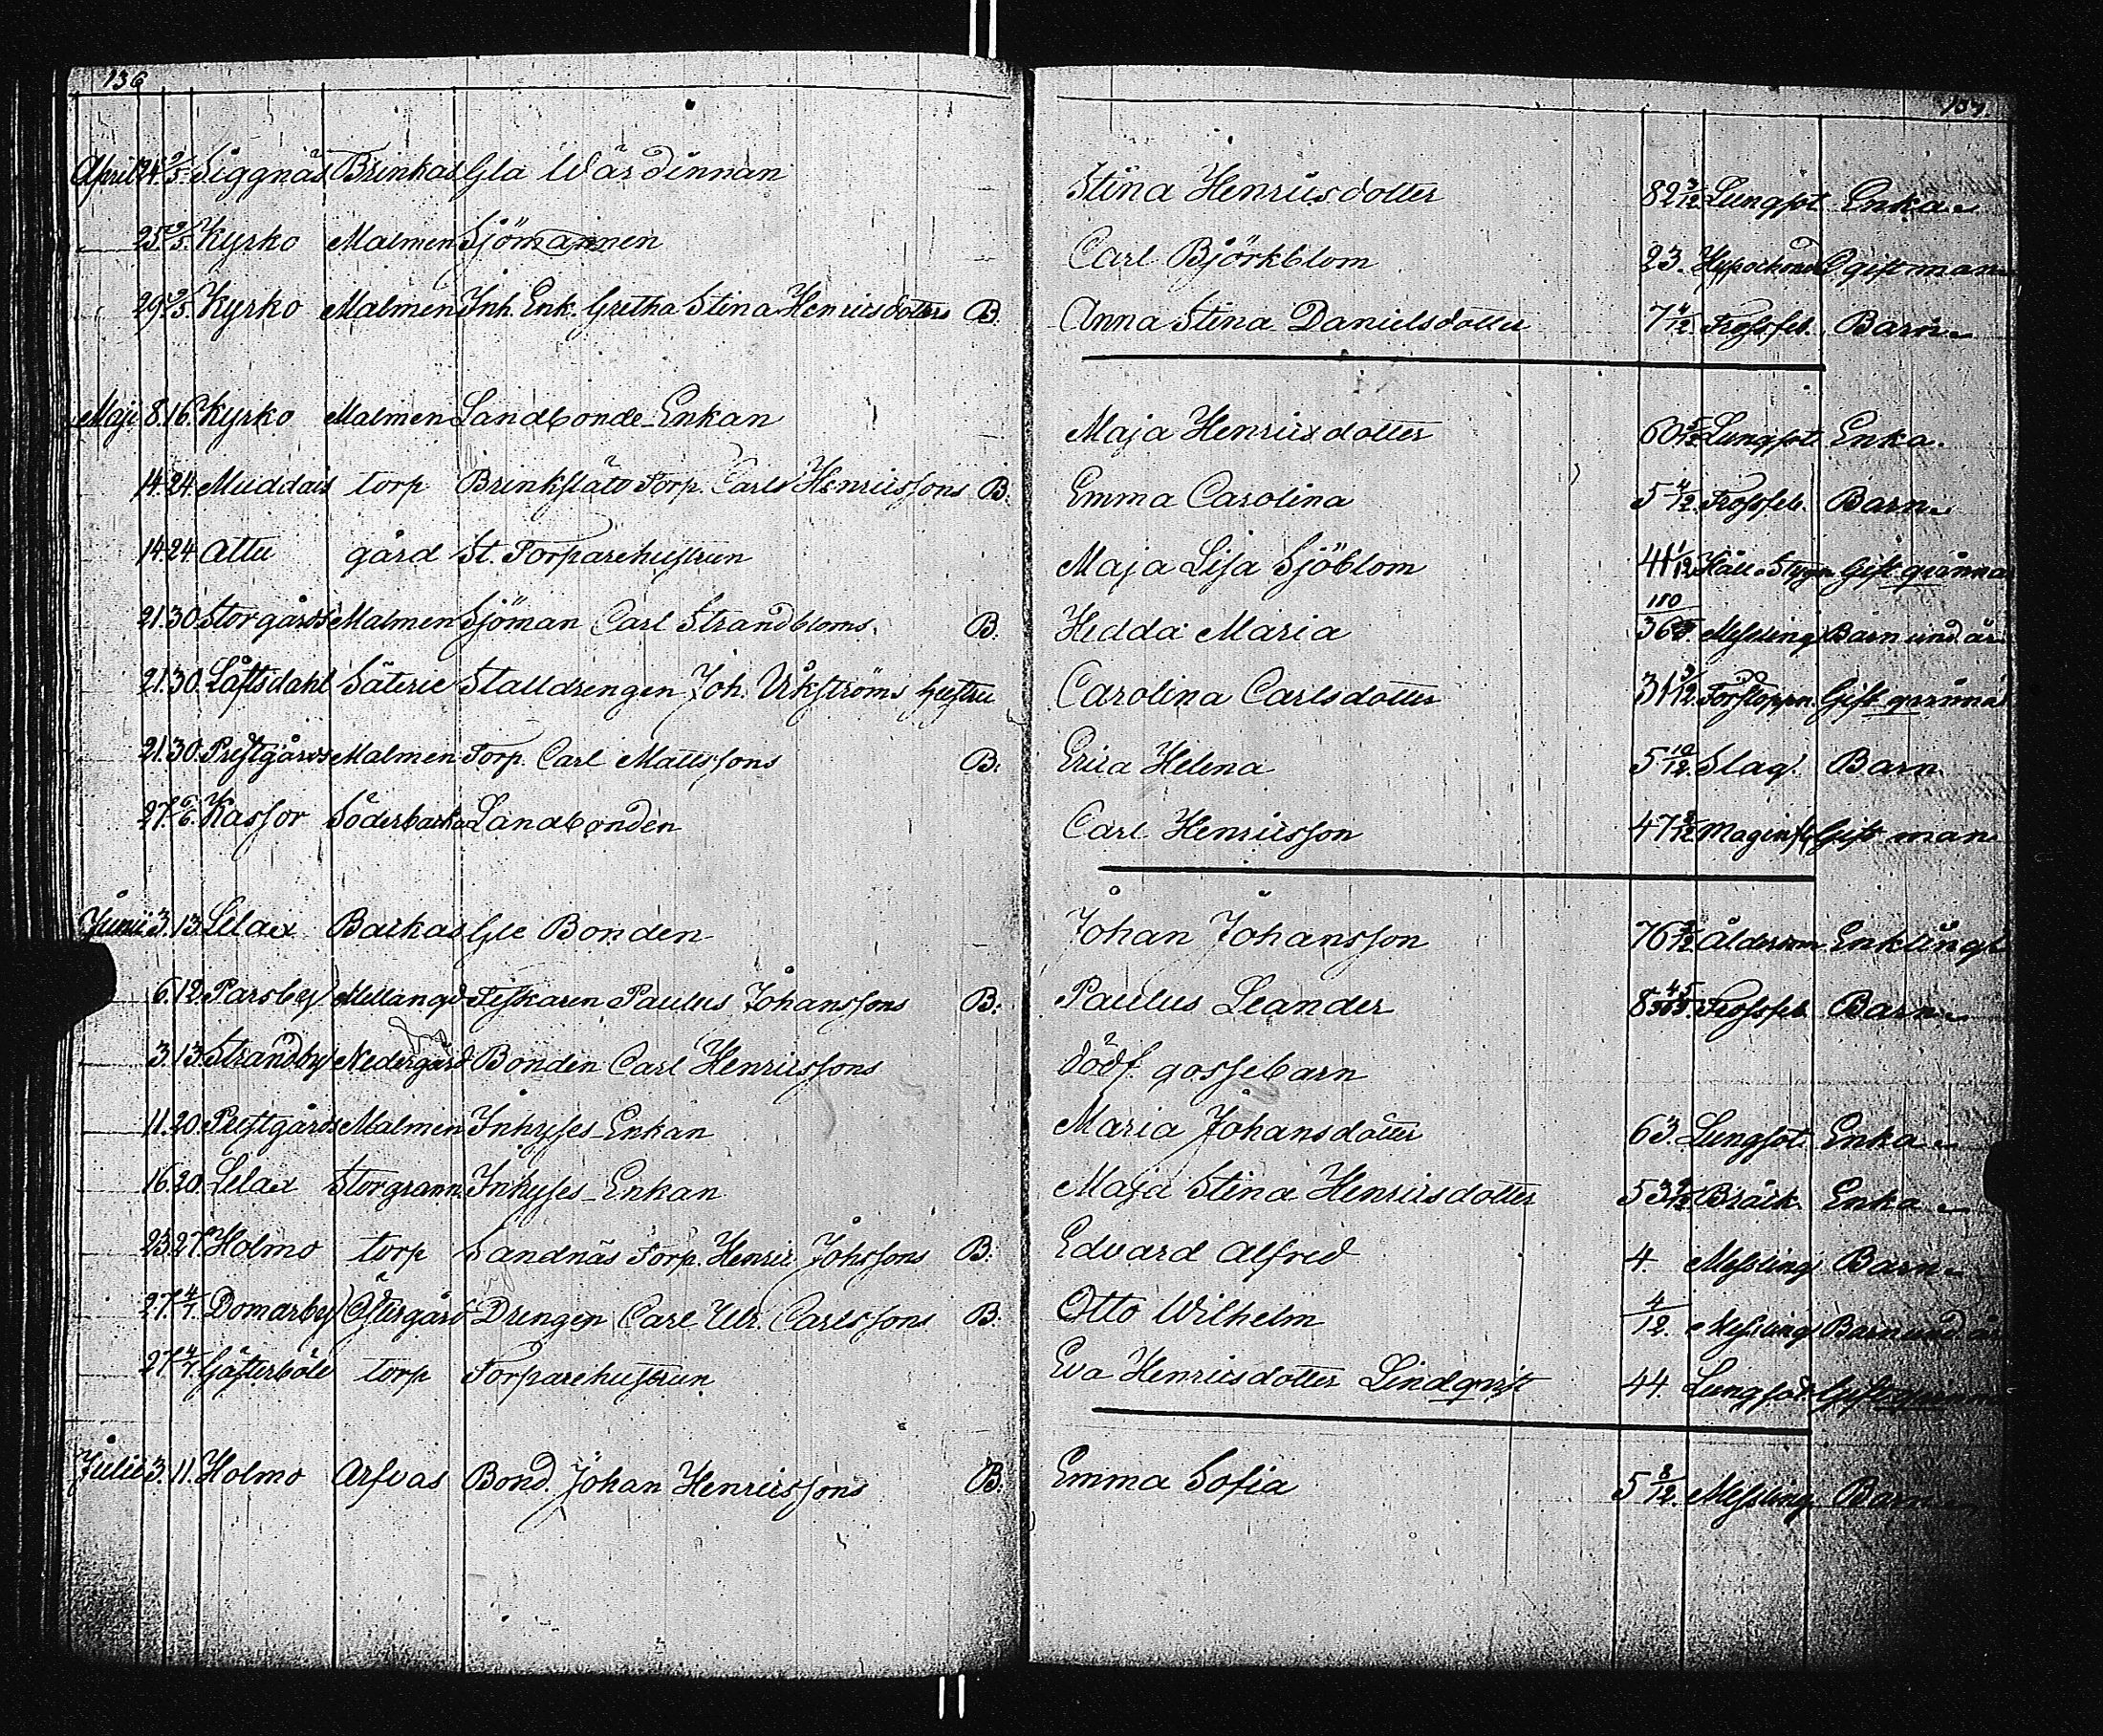 136
137.
April 24. 2/5. Siggnäs Brinkas Gla Wärdinnan Stina Henricsdotter 82 3/12 Lungsot Enka
25. 2/5. Kyrko Malmen Sjömannen Carl Björkblom 23. Hypochond Ogift man
29. 2/5. Kyrko Malmen Inh. Enk. Gretha Stina Henricsdotters B. Anna Stina Danielsdotter 7 4/12 Frossfeb. Barn
Maji 8. 16. Kyrko Malmen Landbonde Enkan Maja Henricsdotter 60 Lungsot Enka.
14. 24. Muddais torp Brinkslätt Torp. Carl Henricssons B. Emma Carolina 5 4/12. Frossfeb. Barn
14. 24. Attu gård St. Torparehustrun Maja Lisa Sjöblom 41 1/12 Håll o Styng Gift qvinna
21. 30. Storgårds Malmen Sjöman Carl Strandbloms B. Hedda Maria 180/365 Messling Barn und. år
21. 30. Låftsdahl Säterie Stalldrengen Joh. Åkströms hustru Carolina Carlsdotter 31 3/12. Förstoppn. Gift qvinna
21. 30. Prestgårds Malmen Torp. Carl Mattssons B. Erica Helena 5 10/12. Slag. Barn
27. 6/6. Kassor Söderbacka Landbonden Carl Henricsson 47 8/12 Maginfl Gift man
Junii 3. 13. Lelax Backas Gle Bonden Johan Johansson 76 Ålderdom Enkling
6. 12. Parsby Mellangd Fiskaren Paulus Johanssons B. Paulus Leander 8 45/365. Frossfeb Barn
3. 13. Strandby Nedergård Bonden Carl Henricssons dödf gossebarn
11. 20. Prestgårds Malmen Inhyses Enkan Maria Johansdotter 63. Lungsot. Enka
16. 20. Lelax Storgrann Inhyses Enkan Maja Stina Henricsdotter 53 Bråck. Enka
23. 27. Holmo torp Sandnäs Torp. Henric Johssons B. Edvard Alfred 4. Messling Barn
27. 4/7. Domarby Östergård Drengen Carl Ulr. Carlssons B. Otto Wilhelm 4/12. Messling Barn und år
27. 4/7. Gästerböle torp Torparehustrun Eva Henricsdotter Lindqvist 44. Lungsot Gift qvinna
Julii 3. 11. Holmo Arfvas Bond. Johan Henricssons B. Emma Sofia 5 8/12. Messling Barn